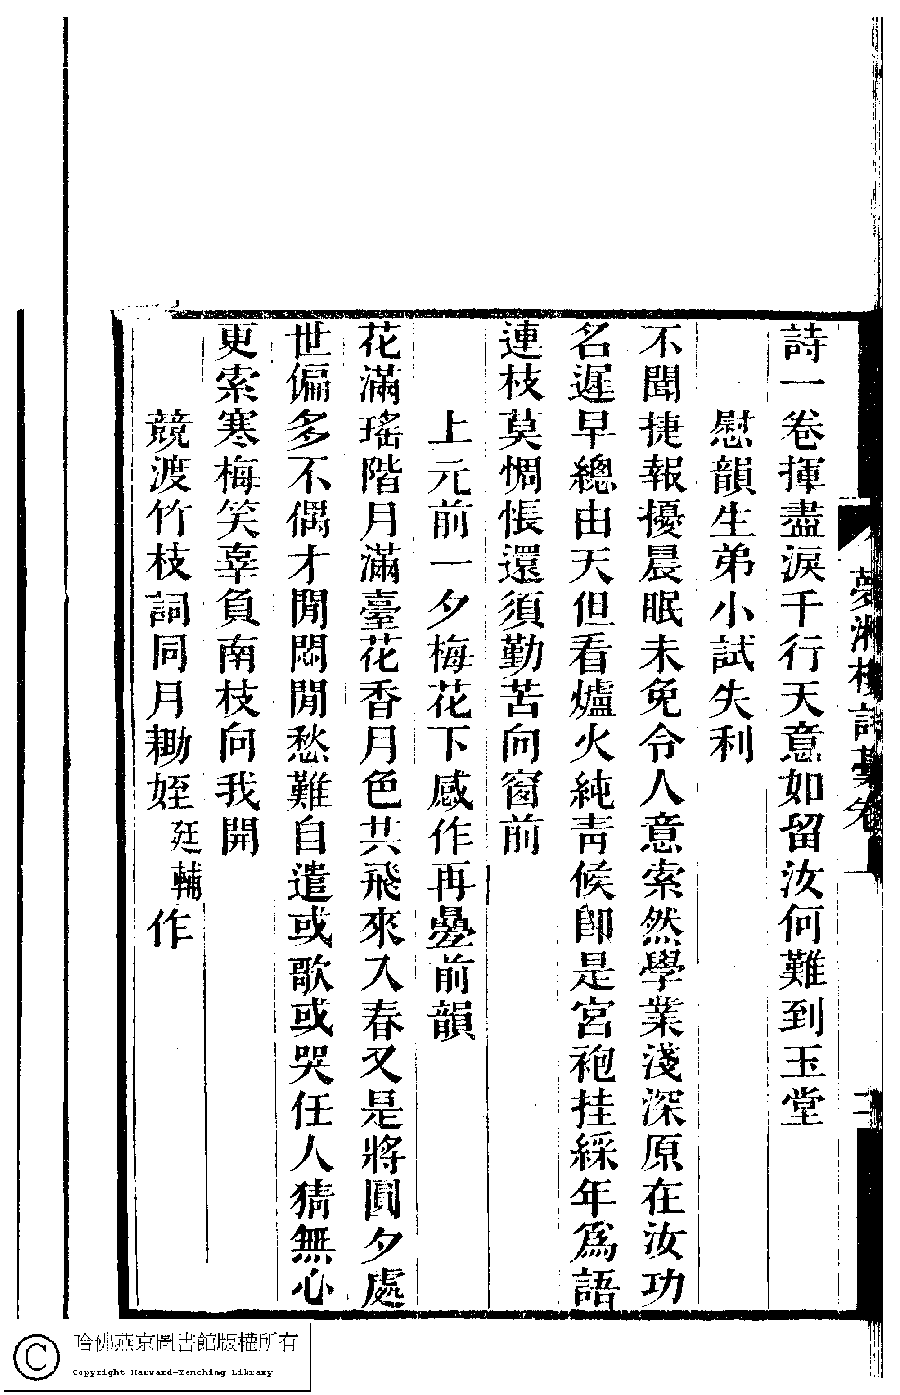 詩一卷揮盡淚千行天意如留汝何難到玉堂
慰韻生弟小試失利
不聞捷報擾晨眠未免令人意索然學業淺深原在汝功
名遲早總由天但看爐火純靑候卽是宮袍挂綵年爲語
連枝莫惆悵還須勤苦向窗前
上元前一夕梅花下感作再疊前韻
花滿瑤階月滿臺花香月色共飛來入春又是將圓夕處
世偏多不偶才閒悶閒愁難自遣或歌或哭任人猜無心
更索寒梅笑辜負南枝向我開
競渡竹枝詞同月耡姪廷輔作
夢湘樓詩藁卷一
二
哈佛燕京圖書館版權所有
Copyright Harvard-Yenching Library